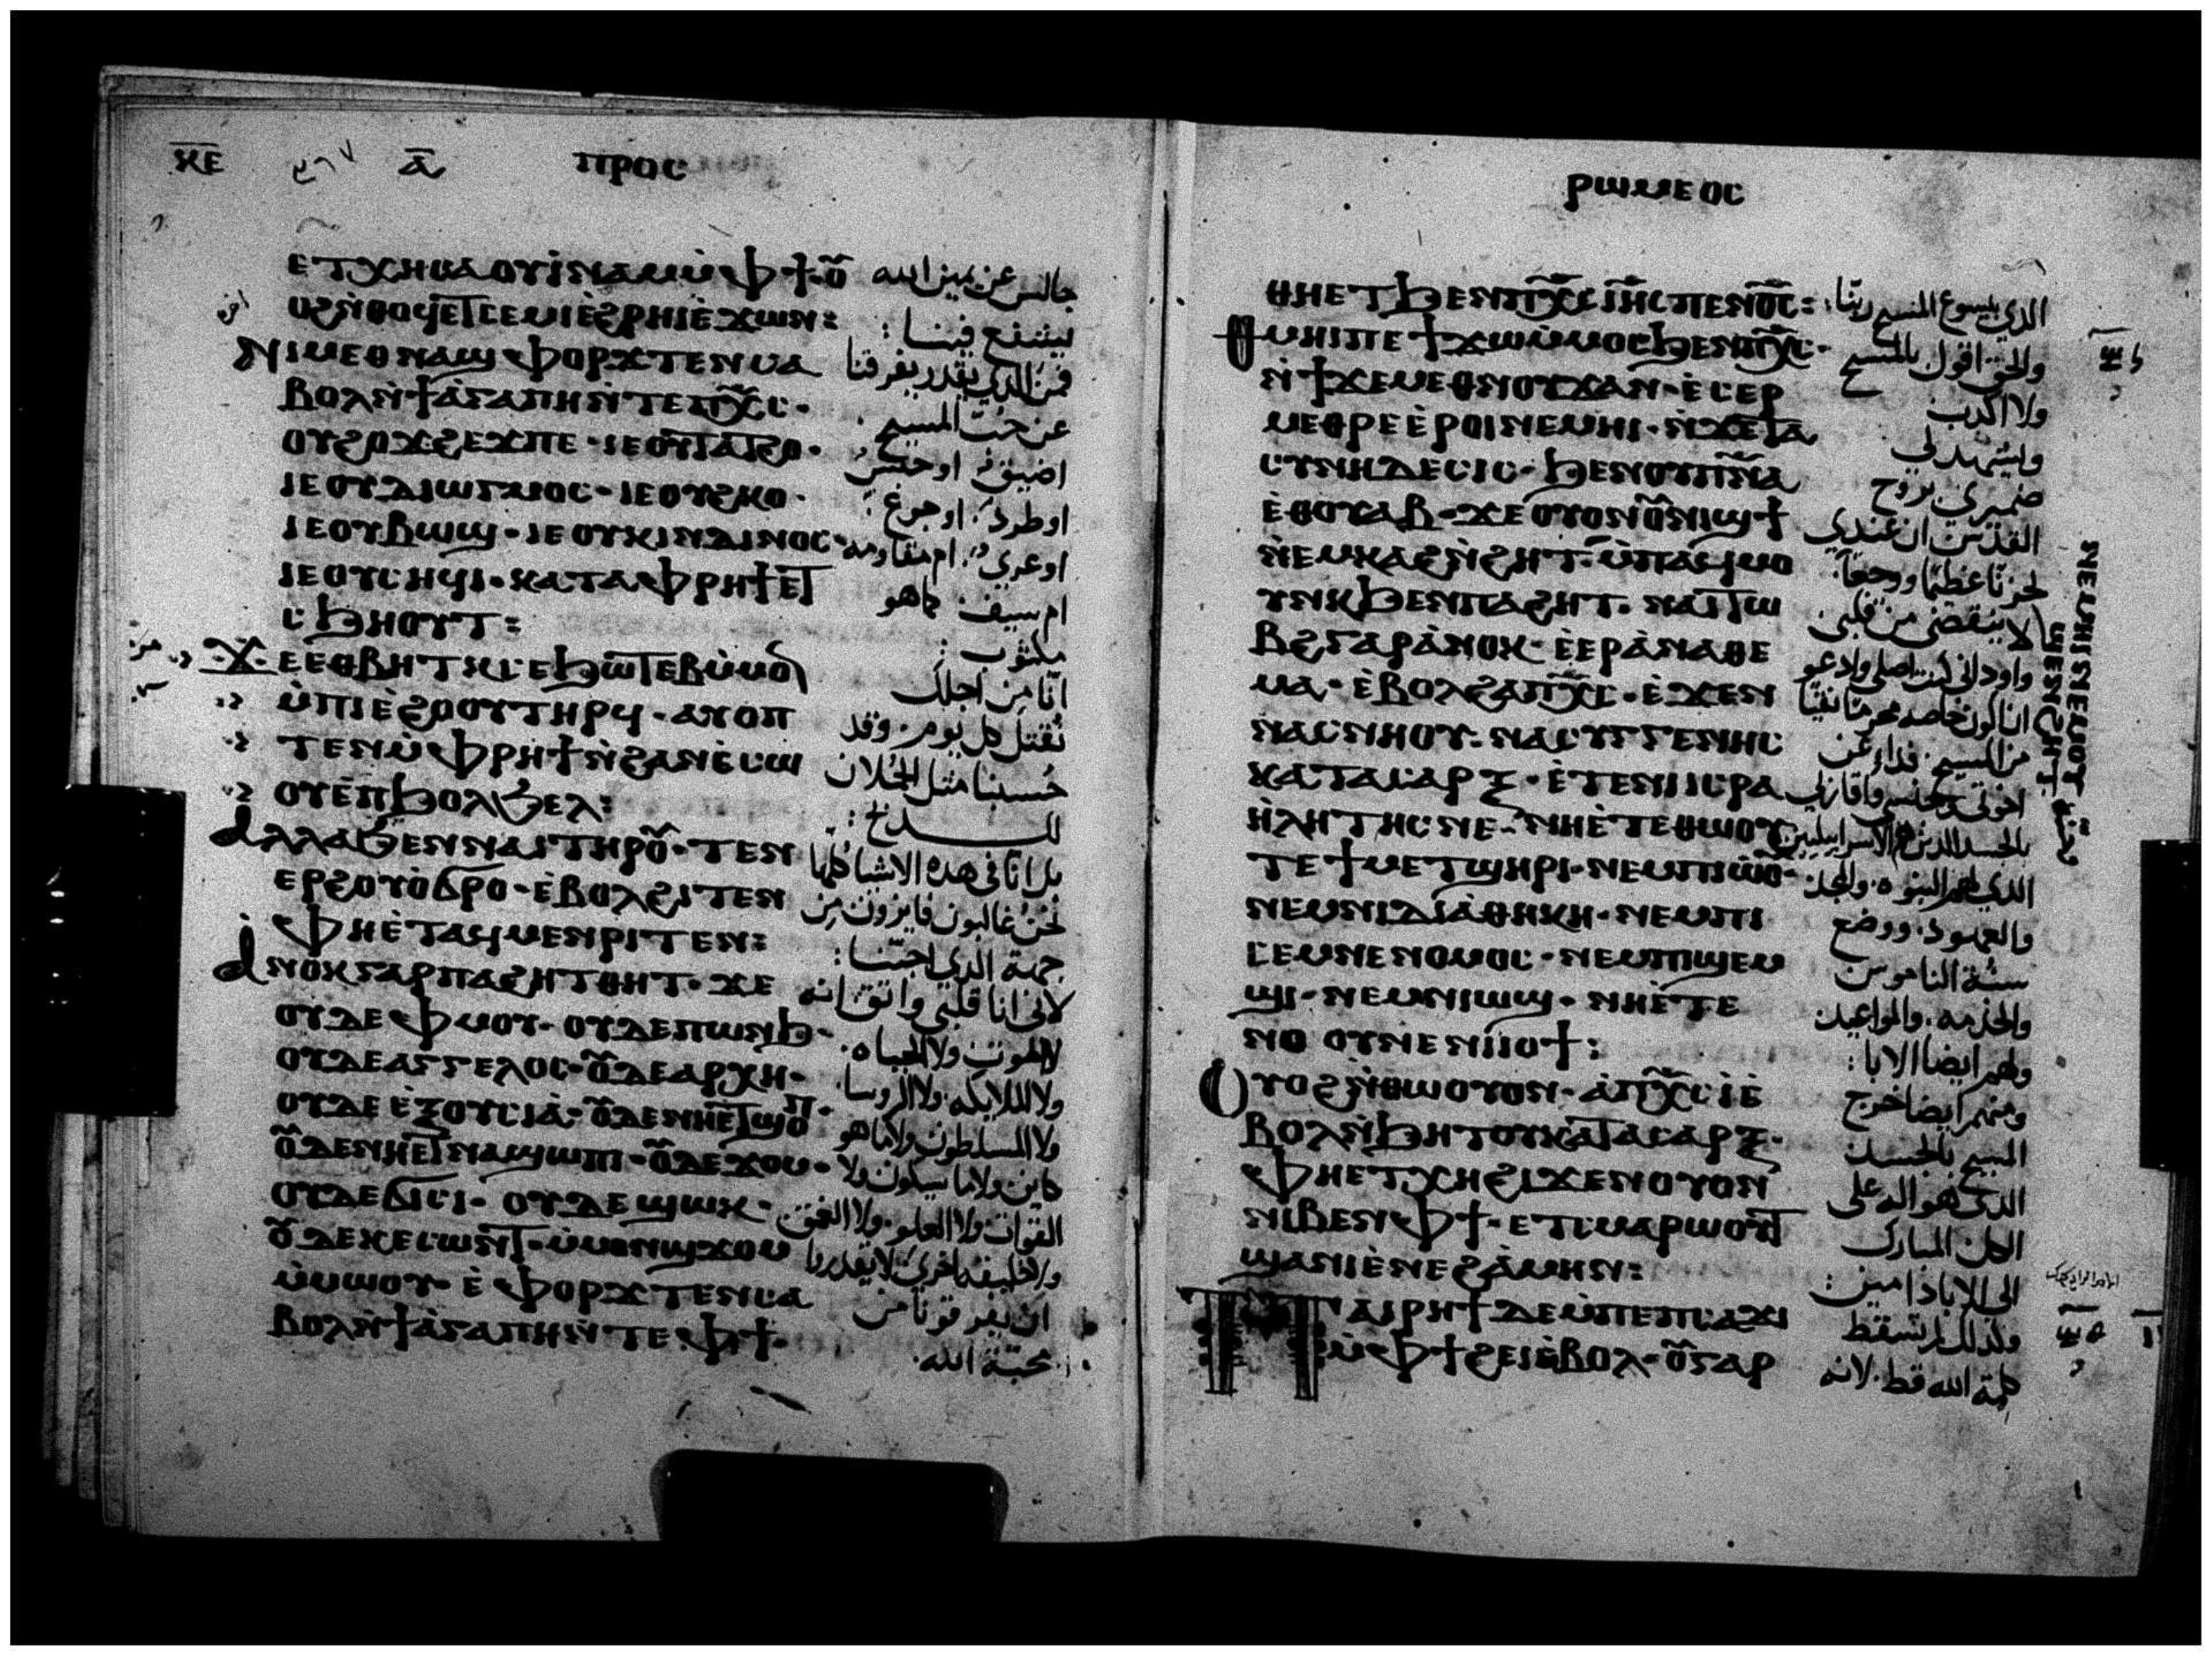 ⲕ̅ⲉ̅ ⲁ̅ ⲡⲣⲟⲥ
ⲉⲧⲭⲏⲥⲁⲟⲩⲓ̀ⲛⲁⲙⲙ̀ⲫϯ·ⲟ̅ⲩ̅ جالس عن يمين الله
ⲟϩⲛ̀ⲑⲟϥⲉⲧⲥⲉⲙⲓⲉ̀ϩⲣⲏⲓⲉ̀ϫⲱⲛ: يشفع فينا:
ⲛⲓⲙⲉⲑⲛⲁϣⲫⲟⲣϫⲧⲉⲛⲥⲁ فمن الذي يقدر يفرقنا
ⲃⲟⲗⲛ̀ϯⲁ̀ⲅⲁⲡⲏⲛ̀ⲧⲉⲡⲭ̅ⲥ̅· عن حبّ المسيح
ⲟⲩϩⲟϫϩⲉϫⲡⲉ·ⲓⲉⲟⲩⲧⲁⲧϩⲟ· اضيق او حبس
ⲓⲉⲟⲩⲇⲓⲱⲅⲙⲟⲥ·ⲓⲉⲟⲩϩⲕⲟ· او طرد او جوع
ⲓⲉⲟⲩⲃⲱϣ·ⲓⲉⲟⲩⲕⲓⲛⲇⲓⲛⲟⲥ· او عري ام مقاومه
ⲓⲉⲟⲩⲥⲏϥⲓ·ⲕⲁⲧⲁⲫⲣⲏϯⲉⲧ ام سيف كما هو
ⲥϧⲏⲟⲩⲧ: مكتوب:
ϫⲉⲉⲑⲃⲏⲧⲕⲥⲉϧⲱⲧⲉⲃⲙ̀ⲙⲟⲛ انّا من اجلك
ⲙ̀ⲡⲓⲉ̀ϩⲟⲟⲩⲧⲏⲣϥ·ⲁⲩⲟⲡ نقتل كل يوم. وقد
ⲧⲉⲛⲙ̀ⲫⲣⲏϯⲛ̀ϩⲁⲛⲉ̀ⲥⲱ حسبنا مثل الحملان
ⲟⲩⲉ̀ⲡϧⲟⲗϧⲉⲗ: للذبح:
ⲁⲗⲗⲁϧⲉⲛⲛⲁⲓⲧⲏⲣⲟ̅ⲩ̅·ⲧⲉⲛ بل انّا في هذه الاشيا كلها
ⲉⲣϩⲟⲩⲟ̀ϭⲣⲟ·ⲉ̀ⲃⲟⲗϩⲓⲧⲉⲛ نحن غالبون فايزون من
ⲫⲏⲉ̀ⲧⲁϥⲙⲉⲛⲣⲓⲧⲉⲛ: جهة الذي احبّنا:
ⲁ̀ⲛⲟⲕⲅⲁⲣⲡⲁϩⲏⲧⲑⲏⲧ·ϫⲉ لاني انا قلبي واثق انه
ⲟⲩⲇⲉⲫⲙⲟⲩ·ⲟⲩⲇⲉⲡⲱⲛϧ· لا الموت ولا الحياه
ⲟⲩⲇⲉⲁⲅⲅⲉⲗⲟⲥ·ⲟ̅ⲩ̅ⲇⲉⲁⲣⲭⲏ· ولا الملايكه ولا الروسا
ⲟⲩⲇⲉⲉ̀ⲝⲟⲩⲥⲓⲁ̀·ⲟ̅ⲩ̅ⲇⲉⲛⲏⲉⲧϣⲟⲡ· ولا المسلطون ولا ما هو
ⲟ̅ⲩ̅ⲇⲉⲛⲏⲉⲧⲛⲁϣⲱⲡⲓ·ⲟ̅ⲩ̅ⲇⲉϫⲟⲙ· كاين ولا ما سيكون ولا
ⲟⲩⲇⲉϭⲓⲥⲓ·ⲟⲩⲇⲉϣⲱⲕ· القوات ولا العلو ولا العمق
ⲟ̅ⲩ̅ⲇⲉⲕⲉⲥⲱⲛⲧ·ⲙ̀ⲙⲟⲛϣϫⲟⲙ ولا خليقه اخرى لا يقدروا
ⲙ̀ⲙⲱⲟⲩ·ⲉ̀ⲫⲟⲣϫⲧⲉⲛⲥⲁ ان يفرقونا من
ⲃⲟⲗⲛ̀ϯⲁ̀ⲅⲁⲡⲏⲛ̀ⲧⲉⲫϯ· محبّة الله
ⲣⲱⲙⲉⲟⲥ
ⲑⲏⲉⲧϧⲉⲛⲡⲭ̅ⲥ̅ⲓⲏ̅ⲥ̅ⲡⲉⲛⲟ̅ⲥ̅: الذي بيسوع المسيح ربّنا:
ⲑⲙⲏⲓⲡⲉϯϫⲱⲙ̀ⲙⲟⲥϧⲉⲛⲡⲭ̅ⲥ̅· والحق اقول بالمسيح
ⲛ̀ϯϫⲉⲙⲉⲑⲛⲟⲩϫⲁⲛ·ⲉ̀ⲥⲉⲣ ولا اكذب
ⲙⲉⲑⲣⲉⲉ̀ⲣⲟⲓⲛⲉⲙⲏⲓ·ⲛ̀ϫⲉⲧⲁ ويشهد لي
ⲥⲩⲛⲏⲇⲉⲥⲓⲥ·ϧⲉⲛⲟⲩⲡⲛ̅ⲁ̅ ضميري بروح
ⲉ̀ⲑⲟⲩⲁⲃ·ϫⲉⲟⲩⲟⲛⲟ̅ⲩ̅ⲛⲓϣϯ القدس ان عندي
ⲛ̀ⲉⲙⲕⲁϩⲛ̀ϩⲏⲧ·ⲙ̀ⲡⲁϥⲙⲟ لحزنًا عظيمًا ووجعًا
ⲩⲛⲕϧⲉⲛⲡⲁϩⲏⲧ·ⲛⲁⲓⲧⲱ لا ينقضي من قلبي
ⲃϩⲅⲁⲣⲁ̀ⲛⲟⲕ·ⲉ̀ⲉⲣⲁ̀ⲛⲁⲑⲉ واود اني كنت اصلي وادعو
ⲙⲁ·ⲉ̀ⲃⲟⲗϩⲁⲡⲭ̅ⲥ̅·ⲉ̀ϫⲉⲛ
ⲛⲁⲥⲛⲏⲟⲩ·ⲛⲁⲥⲩⲅⲅⲉⲛⲏⲥ من المسيح فدا عن
ⲕⲁⲧⲁⲥⲁⲣⲝ·ⲉ̀ⲧⲉⲛⲓⲓⲥⲣⲁ
ⲏ̀ⲗⲏⲧⲏⲥⲛⲉ·ⲛⲏⲉ̀ⲧⲉⲑⲱⲟⲩ
ⲧⲉϯⲙⲉⲧϣⲏⲣⲓ·ⲛⲉⲙⲡⲓⲱ̀ⲟ̅ⲩ̅· الذي لهم البنوه والمجد
ⲛⲉⲙⲛⲓⲇⲓⲁ̀ⲑⲏⲕⲏ·ⲛⲉⲙⲡⲓ والعهود ووضع
ⲥⲉⲙⲛⲉⲛⲟⲙⲟⲥ·ⲛⲉⲙⲡϣⲉⲙ سنّة الناموس
ϣⲓ·ⲛⲉⲙⲛⲓⲱϣ·ⲛⲏⲉ̀ⲧⲉ والخدمه والمواعيد
ⲛⲟⲟⲩⲛⲉⲛⲓⲟϯ: ولهم ايضا الابا:
ⲟⲩⲟϩⲛ̀ⲑⲱⲟⲩⲟⲛ·ⲁ̀ⲡⲭ̅ⲥ̅ⲓ̀ⲉ̀ ومنهم ايضا خرج
ⲃⲟⲗⲛ̀ϧⲏⲧⲟⲩⲕⲁⲧⲁⲥⲁⲣⲝ· المسيح بالجسد
ⲫⲏⲉⲧⲭⲏϩⲓϫⲉⲛⲟⲩⲟⲛ الذي هو اله على
ⲛⲓⲃⲉⲛⲫϯ·ⲉⲧⲥⲙⲁⲣⲱⲟⲩⲧ الكل المبارك
ϣⲁⲛⲓⲉ̀ⲛⲉϩⲁ̀ⲙⲏⲛ: الى الاباد امين:
ⲡⲁⲓⲣⲏϯⲇⲉⲙ̀ⲡⲉⲡⲥⲁϫⲓ وكذلك لم تسقط
ⲙ̀ⲫϯϩⲉⲓⲉ̀ⲃⲟⲗ·ⲟ̅ⲩ̅ⲅⲁⲣ كلمة الله قط. لانه
ⲛⲉⲙⲏⲓⲛⲉⲙⲟⲩ